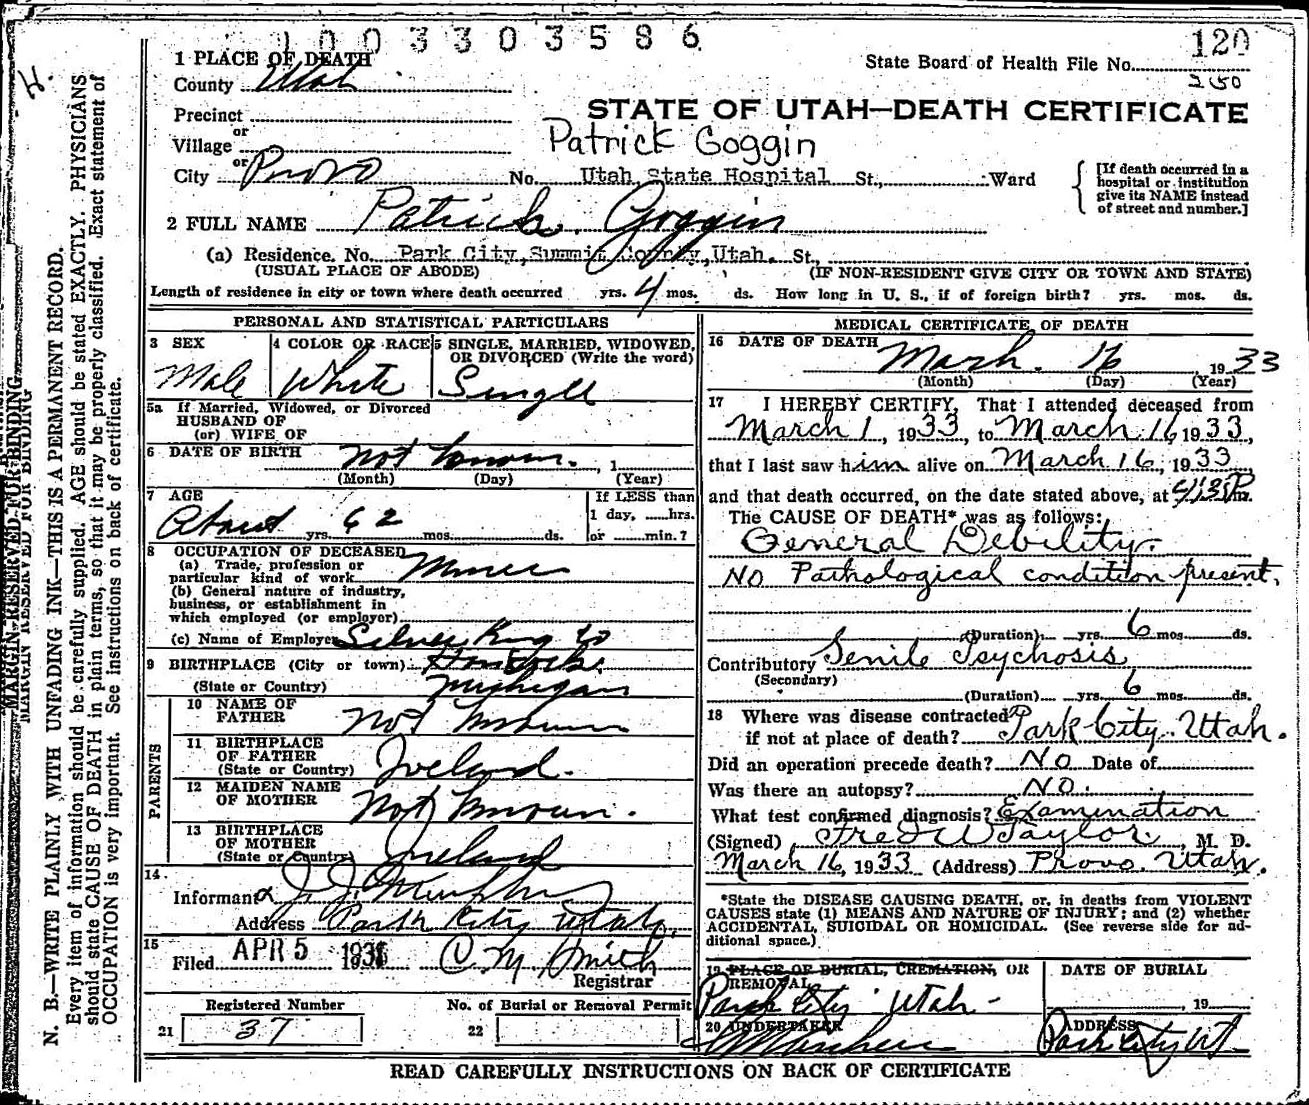 1003303586
120
State Board of Health File No.
250
1 PLACE OF DEATH
County Utah
STATE OF UTAH—DEATH CERTIFICATE
Precinct
or
Village
Patrick Goggin
or
City Provo No. Utah State Hospital St., Ward
[If death occurred in a hospital or institution give its NAME instead of street and number.]
2 FULL NAME Patrick Goggin
(a) Residence. No. Park City, Summit County, Utah. St.,
(USUAL PLACE OF ABODE) (IF NON-RESIDENT GIVE CITY OR TOWN AND STATE)
Length of residence in city or town where death occurred yrs. 4 mos. ds. How long in U. S., if of foreign birth? yrs. mos. ds.
PERSONAL AND STATISTICAL PARTICULARS
3 SEX
Male
4 COLOR OR RACE
White
5 SINGLE, MARRIED, WIDOWED, OR DIVORCED (Write the word)
Single
5a If Married, Widowed, or Divorced
HUSBAND OF
(or) WIFE OF
6 DATE OF BIRTH
not known. , 1
(Month) (Day) (Year)
7 AGE
About 62
yrs. mos. ds.
If LESS than
1 day, ......hrs.
or ......min.?
8 OCCUPATION OF DECEASED
(a) Trade, profession or
particular kind of work Miner
(b) General nature of industry,
business, or establishment in
which employed (or employer)
(c) Name of Employer Silver King Co
9 BIRTHPLACE (City or town) Hancock.
(State or Country) Michigan
PARENTS
10 NAME OF
FATHER Not known
11 BIRTHPLACE
OF FATHER
(State or Country) Ireland.
12 MAIDEN NAME
OF MOTHER Not known.
13 BIRTHPLACE
OF MOTHER
(State or Country) Ireland
14
Informant J. J. Murphy
Address Park City Utah.
15
Filed APR 5 193 C M Smith
Registrar
Registered Number
21 37
No. of Burial or Removal Permit
22
MEDICAL CERTIFICATE OF DEATH
16 DATE OF DEATH
March. 16 1933
(Month) (Day) (Year)
17 I HEREBY CERTIFY, That I attended deceased from
March 1, 1933, to March 16 1933,
that I last saw him alive on March 16, 1933
and that death occurred, on the date stated above, at m.
The CAUSE OF DEATH* was as follows:
General Debility.
No Pathological condition present.
(Duration) yrs. 6 mos. ds.
Contributory Senile Psychosis
(Secondary)
(Duration) yrs. 6 mos. ds.
18 Where was disease contracted
if not at place of death? Park City. Utah.
Did an operation precede death? No Date of
Was there an autopsy? No.
What test confirmed diagnosis? Examination
(Signed) Fred W Taylor, M. D.
March 16, 1933 (Address) Provo. Utah.
*State the DISEASE CAUSING DEATH, or, in deaths from VIOLENT
CAUSES state (1) MEANS AND NATURE OF INJURY; and (2) whether
ACCIDENTAL, SUICIDAL OR HOMICIDAL. (See reverse side for additional space.)
19 PLACE OF BURIAL, CREMATION, OR
REMOVAL
Park City Utah
DATE OF BURIAL
19
20 UNDERTAKER
ADDRESS
Park City Ut
READ CAREFULLY INSTRUCTIONS ON BACK OF CERTIFICATE
MARGIN RESERVED FOR BINDING
MARGIN RESERVED FOR BINDING
N. B.—WRITE PLAINLY WITH UNFADING INK—THIS IS A PERMANENT RECORD.
Every item of information should be carefully supplied. AGE should be stated EXACTLY. PHYSICIANS
should state CAUSE OF DEATH in plain terms, so that it may be properly classified. Exact statement of
OCCUPATION is very important. See instructions on back of certificate.